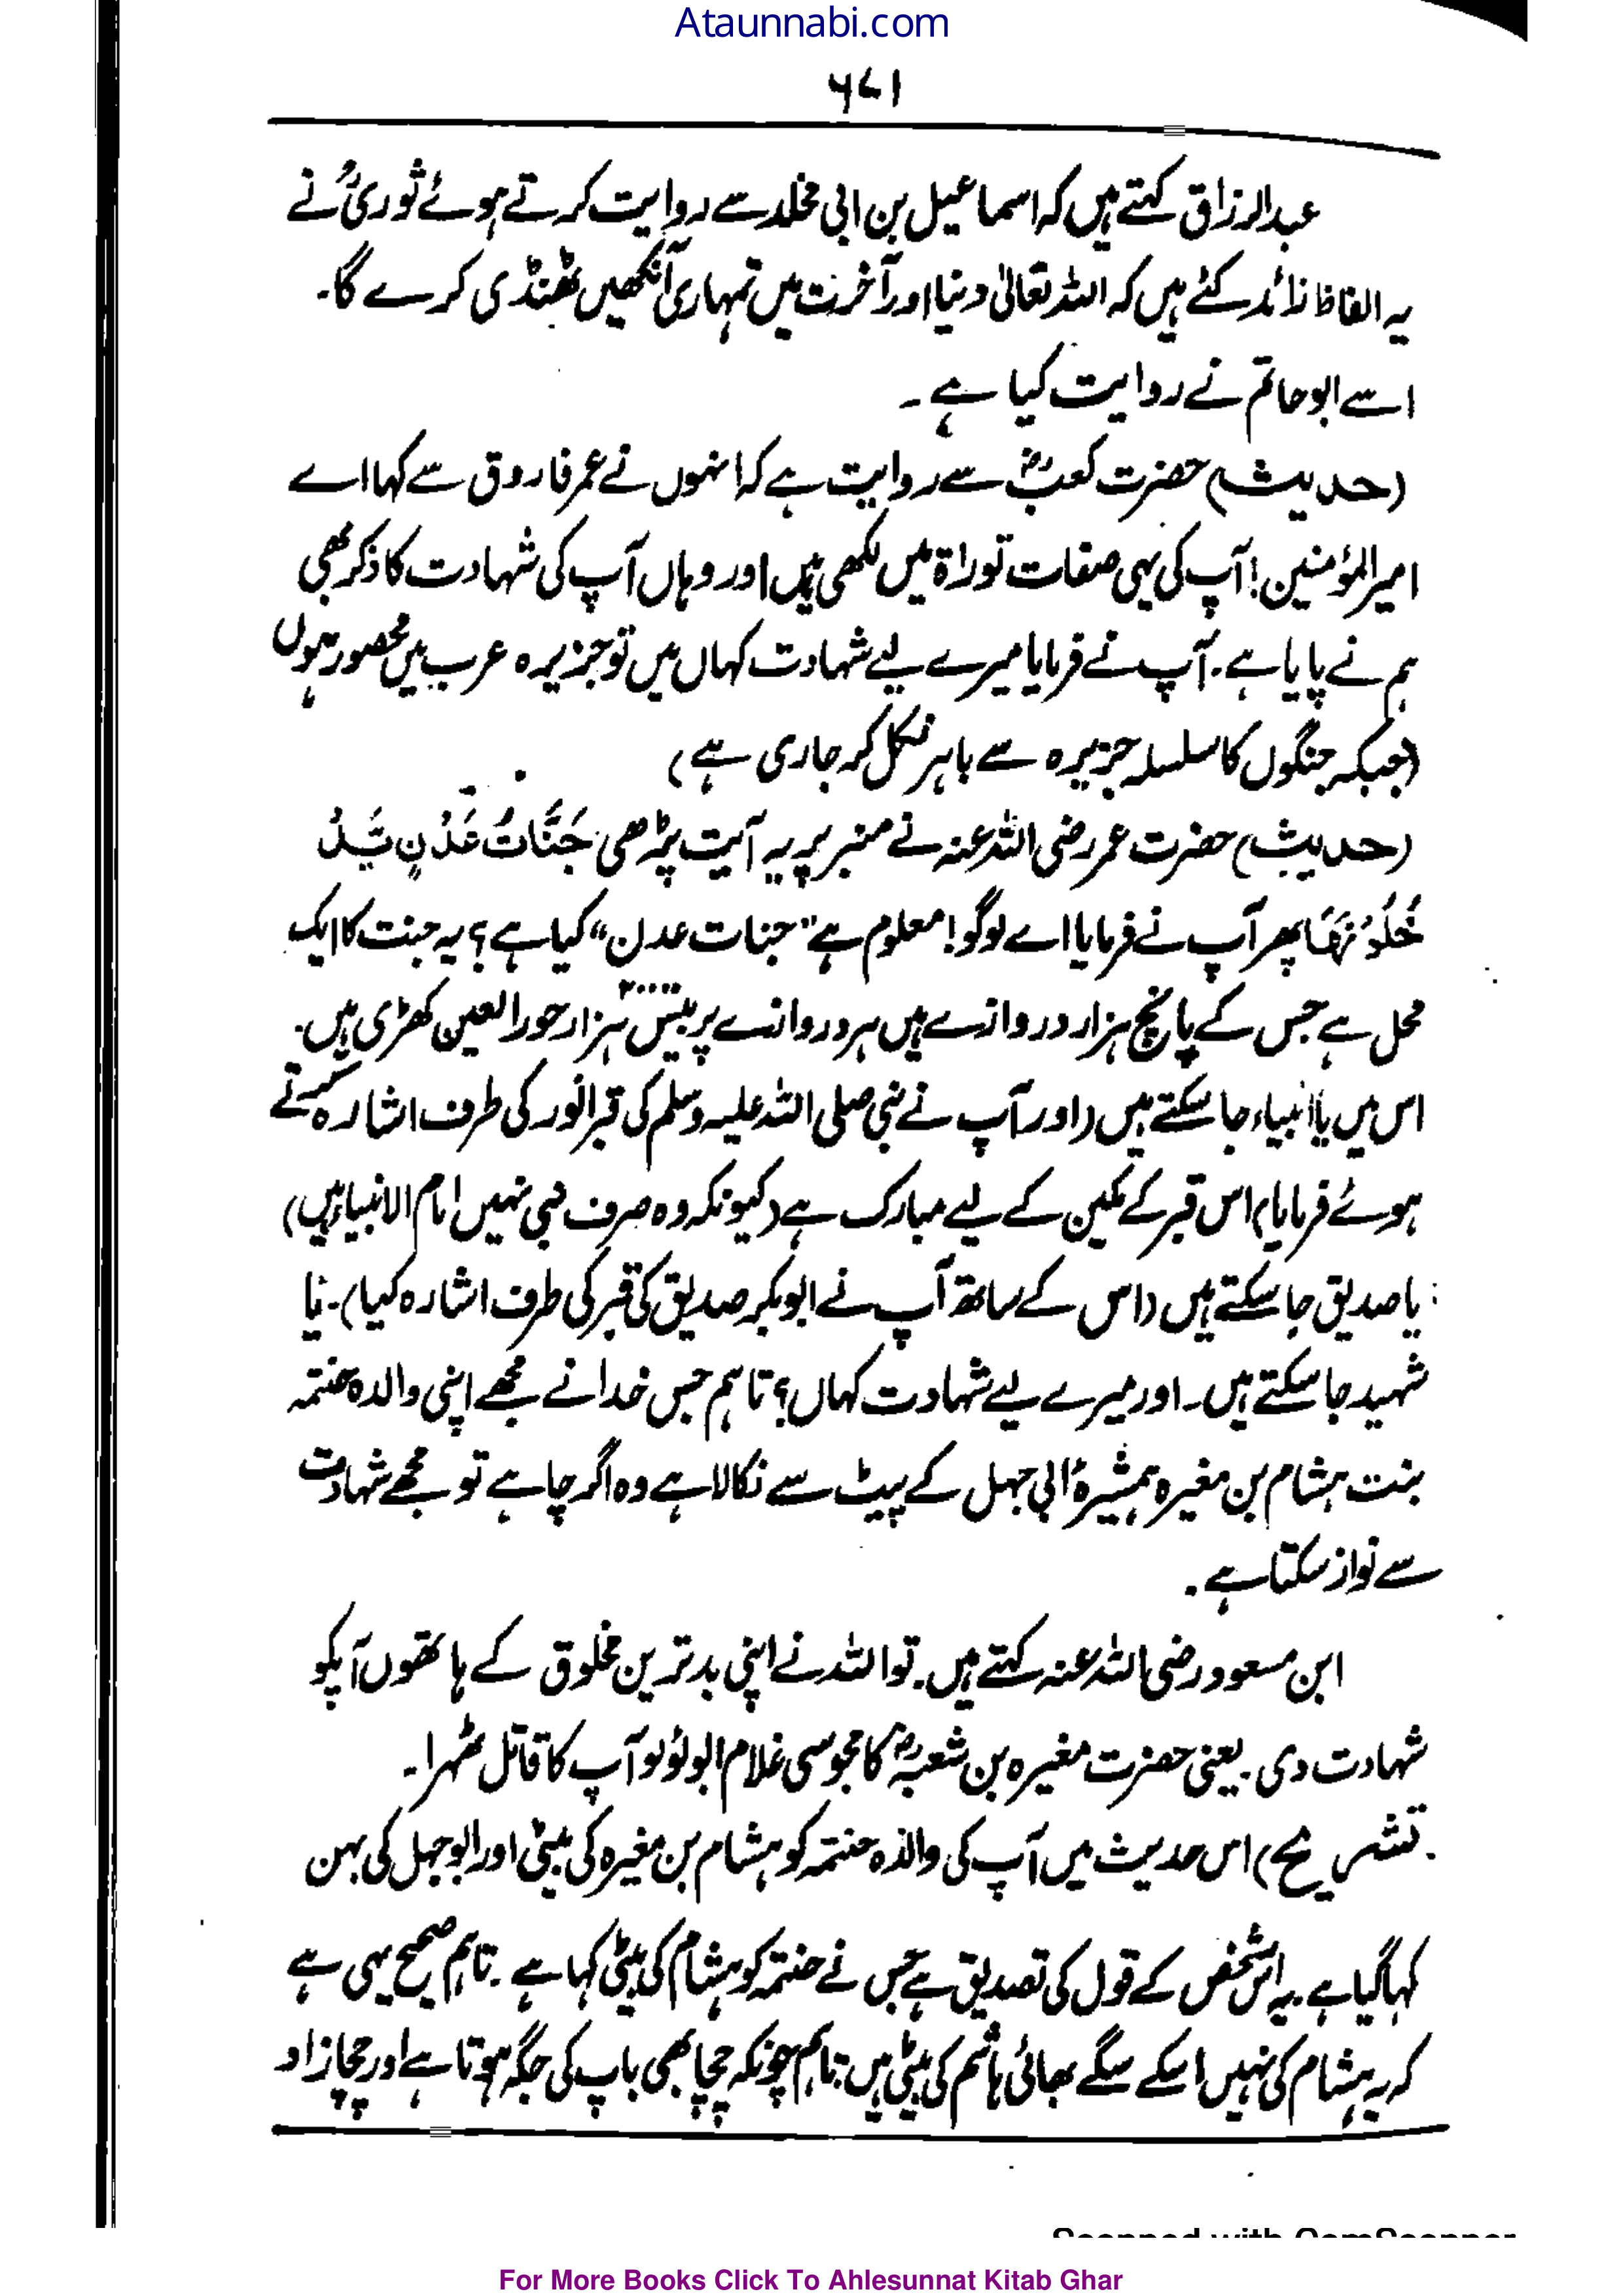 Ataunnabi.com
۶۷۱
عبدالرزاق کہتے ہیں کہ اسماعیل بن ابی مخلد سے روایت کرتے ہوئے ثوریؒ نے
یہ الفاظ زائد کئے ہیں کہ اللہ تعالیٰ دنیا اور آخرت میں تمہاری آنکھیں ٹھنڈی کرے گا۔
اسے ابوحاتم نے روایت کیا ہے۔
(حدیث) حضرت کعبؓ سے روایت ہے کہ انہوں نے عمر فاروق سے کہا اے
امیرالمؤمنین! آپ کی یہی صفات توراۃ میں لکھی ہیں اور وہاں آپ کی شہادت کا ذکر بھی
ہم نے پایا ہے۔ آپ نے فرمایا میرے لیے شہادت کہاں میں تو جزیرہ عرب میں محصور ہوں
(جبکہ جنگوں کا سلسلہ جزیرہ سے باہر نکل کر جاری ہے)
(حدیث) حضرت عمر رضی اللہ عنہ نے منبر پر یہ آیت پڑھی جَنَّاتُ عَدْنٍ یَّدْ
خُلُوْنَهَا پھر آپ نے فرمایا اے لوگو! معلوم ہے "جنات عدن" کیا ہے؟ یہ جنت کا ایک
محل ہے جس کے پانچ ہزار دروازے ہیں ہر دروازے پر بیس ہزار حورالعین کھڑی ہیں۔
اس میں یا انبیاء جا سکتے ہیں (اور آپ نے نبی صلی اللہ علیہ وسلم کی قبر انور کی طرف اشارہ کرتے
ہوئے فرمایا) اس قبر کے مکین کے لیے مبارک ہے (کیونکہ وہ صرف نبی نہیں امام الانبیاء ہیں)
یا صدیق جا سکتے ہیں (اس کے ساتھ آپ نے ابوبکر صدیق کی قبر کی طرف اشارہ کیا)۔ یا
شہید جا سکتے ہیں۔ اور میرے لیے شہادت کہاں؟ تاہم جس خدا نے مجھے اپنی والدہ حنتمہ
بنت ہشام بن مغیرہ ہمشیرۂ ابی جہل کے پیٹ سے نکالا ہے وہ اگر چاہے تو مجھے شہادت
سے نواز سکتا ہے۔
ابن مسعود رضی اللہ عنہ کہتے ہیں۔ تو اللہ نے اپنی بدترین مخلوق کے ہاتھوں آپکو
شہادت دی۔ یعنی حضرت مغیرہ بن شعبہؓ کا مجوسی غلام ابولؤلو آپ کا قاتل ٹھہرا۔
تشریح) اس حدیث میں آپ کی والدہ حنتمہ کو ہشام بن مغیرہ کی بیٹی اور ابوجہل کی بہن
کہا گیا ہے۔ یہ اس شخص کے قول کی تصدیق ہے جس نے حنتمہ کو ہشام کی بیٹی کہا ہے۔ تاہم صحیح یہی ہے
کہ یہ ہشام کی نہیں اسکے سگے بھائی ہاشم کی بیٹی ہیں۔ تاہم چونکہ چچا بھی باپ کی جگہ ہوتا ہے اور چچازاد
Scanned with CamScanner
For More Books Click To Ahlesunnat Kitab Ghar